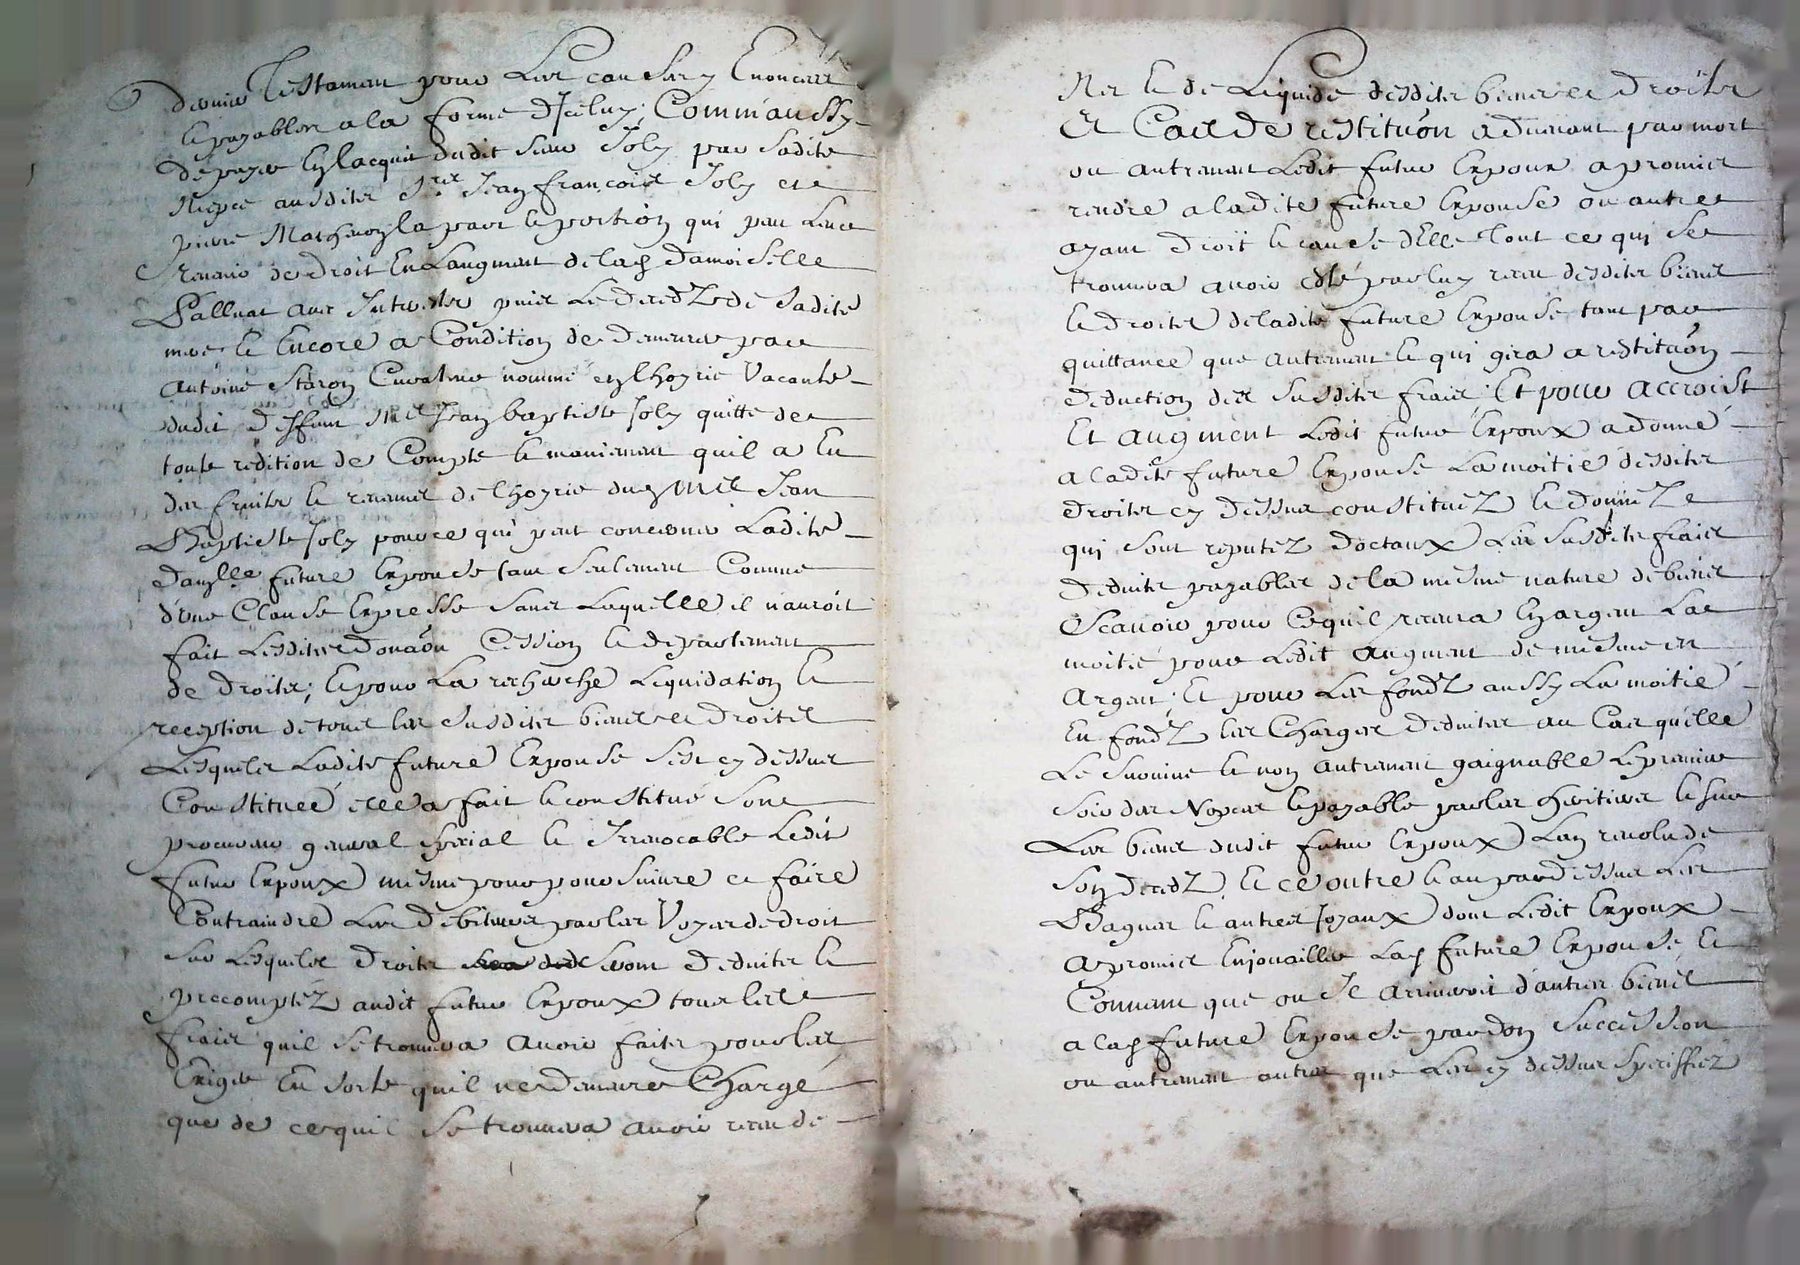 dernier Testament pour Les causes y Enoncees
et payables a la forme d'Iceluy; Comm'aussy
de payer En lacquit dudit sieur Joly par sadite
Niepce ausdites Jean françois Joly et
pierre la part et portion qui peut Leur
revenir de droit En Laugment de lad damoiselle
Palluat avec Interests puis Le decedz de sadite
mere et Encore a Condition de demeurer par
Antoine Staron Curateur nommé en lhoyrie Vacante
dudit deffunt Mre Jean baptiste Joly quitte de
toute redition de Compte et maniement quil a Eu
des fruits et revenus de lhoyrie dud Mre Jean
Baptiste Joly pour ce qui peut concerner Ladite
damlle future Espouse tant seulement Comme
dune Clause Expresse sans Laquelle il nauroit
fait Lesdites donaôn Cession et departement
de droits; Et pour La recherche Liquidation et
reception de tous les susdites biens et droits
Lesquels Ladite future Espouse sest cy dessus
Constituée elle a fait et constitué son
procureur general special et Irrevocable Ledit
futur Espoux mesme pour poursuivre et faire
Contraindre Les debiteurs par les Voyes de droit
sur Lesquels droits seront deduites et
precomptéz audit futur Espoux tous les
fraix quil se trouvera avoir faits pour les
Exiger En sorte quil ne demeure Chargé
que de ce quil se trouvera avoir receu de
Net et de Liquide desdites biens et droits
Et Cas de restituôn advenant par mort
ou autrement Ledit futur Espoux a promis
rendre a ladite future Espouse ou autres
ayant droit et cause d'Elle tout ce qui se
trouvera avoir esté par luy receu desdites biens
et droits de ladite future Espouse tant par
quittance que autrement et qui gira a restituôn
deduction des susdites fraix Et pour accroist
Et augment Ledit futur Espoux a donné
a ladite future Espouse La moitié desdites
droits cy dessus constituez et donnéz
qui sont reputez doctaux Les susdits fraix
deduits payables de la mesme nature de biens
Scavoir pour ce quil recevra En argent La
moitié pour Ledit augment de mesme en
Argent; Et pour Les fondz aussy La moitié
En fondz les Charges deduites au Cas quelle
Le survive et non autrement gaignable Le premier
soir des Nopces et payable par les heritiers et sur
Les biens dudit futur Espoux Lan revolu de
son decedz Et ce outre et au par dessus Les
Bagues et autres Joyaux dont Ledit Espoux
a promis Enjouailler Lad future Espouse, Et
Convenu que ou Il arriveroit d'autres biens
a lad future Espouse par don succession
ou autrement autres que Les cy dessus speciffiez